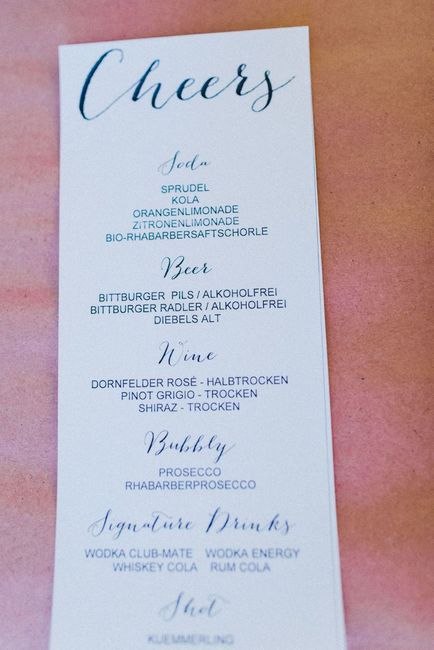 Cheers
Soda
SPRUDEL
KOLA
ORANGENLIMONADE
ZITRONENLIMONADE
BIO-RHABARBERSAFTSCHORLE
Beer
BITTBURGER PILS / ALKOHOLFREI
BITTBURGER RADLER / ALKOHOLFREI
DIEBELS ALT
Wine
DORNFELDER ROSÉ - HALBTROCKEN
PINOT GRIGIO - TROCKEN
SHIRAZ - TROCKEN
Bubbly
PROSECCO
RHABARBERPROSECCO
Signature Drinks
WODKA CLUB-MATE WODKA ENERGY
WHISKEY COLA RUM COLA
Shot
KUEMMERLING